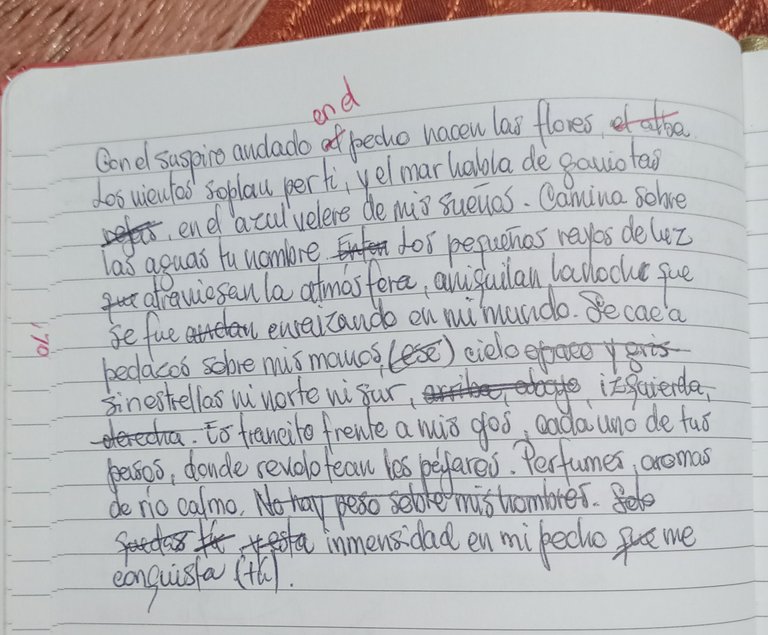 en d
Con el suspiro andado al pecho nacen las flores, el alba
Los vientos soplan por ti, y el mar habla de gaviotas
rejas, en el azul velero de mis sueños. Camina sobre
las aguas tu nombre. Enten Los pequeños rayos de luz
que atraviesan la atmósfera, aniquilan la noche que
se fue andan enraizando en mi mundo. Se cae a
pedacos sobre mis manos, (ese) cielo opaco y gris
sin estrellas ni norte ni sur, arriba, abajo, izquierda,
derecha. Es trancito frente a mis ojos, cada uno de tus
pasos, donde revolotean los pájaros. Perfumes, aromas
de río calmo. No hay peso sobre mis hombros. Solo
quedas tu y esta inmensidad en mi pecho que me
conquista (tu).